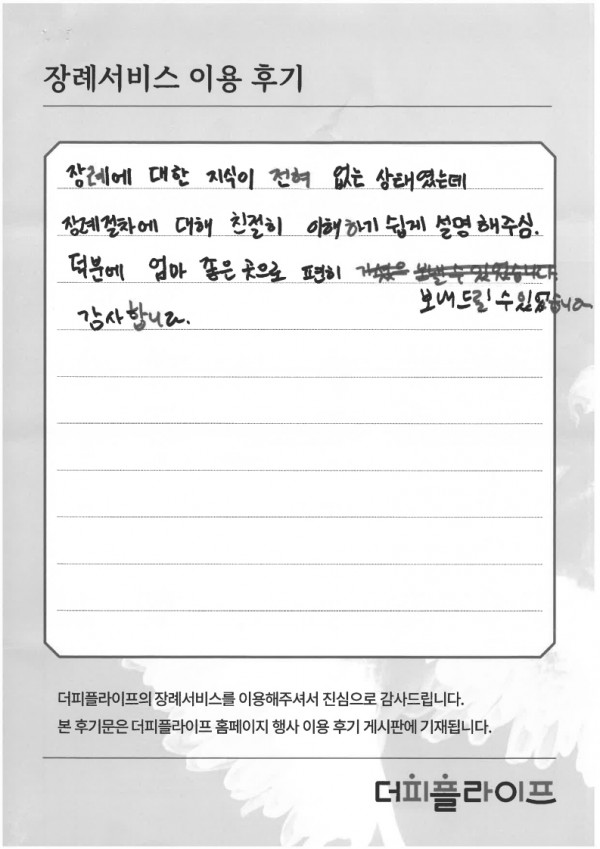 장례서비스 이용 후기
장례에 대한 지식이 전혀 없는 상태였는데
장례절차에 대해 친절히 이해하기 쉽게 설명해주심.
덕분에 엄마 좋은 곳으로 편히 보낼 수 있었습니다.
보내드릴 수 있었습니다
감사합니다.
더피플라이프의 장례서비스를 이용해주셔서 진심으로 감사드립니다.
본 후기문은 더피플라이프 홈페이지 행사 이용 후기 게시판에 기재됩니다.
더피플라이프